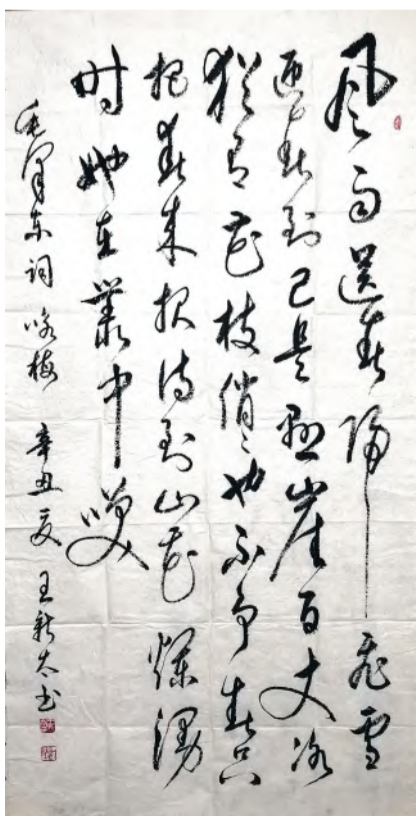 风雨送春归飞雪
迎春到已是悬崖百丈冰
犹有花枝俏俏也不争春只
把春来报待到山花烂漫
时她在丛中笑
毛泽东词咏梅 辛丑夏 王新太书